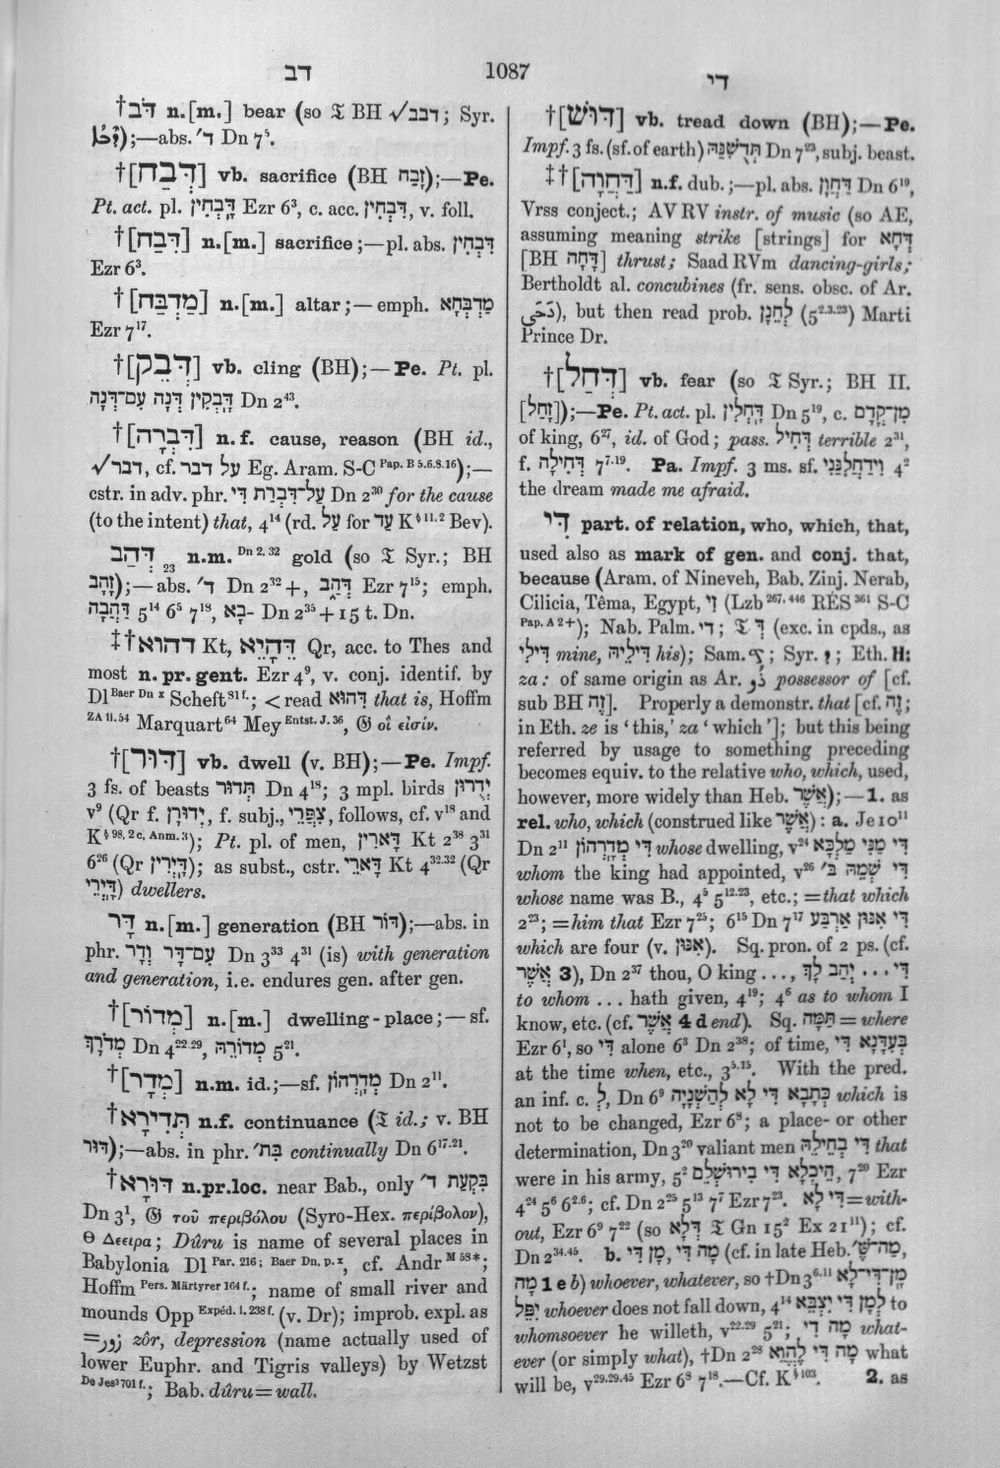 דב
1087
די
†דֹּב n.[m.] bear (so 𝔗 BH √דבב; Syr.
);—abs. ד׳ Dn 7⁵.
†[דְּבַח] vb. sacrifice (BH זָבַח);—Pe.
Pt. act. pl. דָּבְחִין Ezr 6³, c. acc. דִּבְחִין, v. foll.
†[דְּבַח] n.[m.] sacrifice;—pl. abs. דִּבְחִין
Ezr 6³.
†[מַדְבַּח] n.[m.] altar;—emph. מַדְבְּחָא
Ezr 7¹⁷.
†[דְּבֵק] vb. cling (BH);—Pe. Pt. pl.
דָּבְקִין דְּנָה עִם־דְּנָה Dn 2⁴³.
†[דִּבְרָה] n.f. cause, reason (BH id.,
√דבר, cf. על דבר Eg. Aram. S-C Pap. B 5.6.8.16);—
cstr. in adv. phr. עַל־דִּבְרַת דִּי Dn 2³⁰ for the cause
(to the intent) that, 4¹⁴ (rd. עַל for עַד K§ 11, 2 Bev).
דְּהַב 23 n.m. Dn 2, 32 gold (so 𝔗 Syr.; BH
זָהָב);—abs. ד׳ Dn 2³² +, דְּהַב Ezr 7¹⁵; emph.
דַּהֲבָה 5¹⁴ 6⁵ 7¹⁸, ־בָא Dn 2³⁵ + 15 t. Dn.
‡†דהוא Kt, דֶּהָיֵא Qr, acc. to Thes and
most n.pr.gent. Ezr 4⁹, v. conj. identif. by
Dl Baer Dn x Scheft 81 f.; < read דִּהוּא that is, Hoffm
ZA ii. 54 Marquart 64 Mey Entst. J. 36, 𝔊 οἵ εἰσίν.
†[דּוּר] vb. dwell (v. BH);—Pe. Impf.
3 fs. of beasts תְּדוּר Dn 4¹⁸; 3 mpl. birds יְדֻרוּן
v⁹ (Qr f. יְדוּרָן, f. subj., צִפֲּרֵי, follows, cf. v¹⁸ and
K§ 98, 2 c, Anm. 3); Pt. pl. of men, דָּאֲרִין Kt 2³⁸ 3³¹
6²⁶ (Qr דָּיְרִין); as subst., cstr. דָּאֲרֵי Kt 4³²·³² (Qr
דָּיְרֵי) dwellers.
דָּר n.[m.] generation (BH דּוֹר);—abs. in
phr. עִם־דָּר וְדָר Dn 3³³ 4³¹ (is) with generation
and generation, i.e. endures gen. after gen.
†[מְדוֹר] n.[m.] dwelling-place;—sf.
מְדֹרָךְ Dn 4²²·²⁹, מְדוֹרֵהּ 5²¹.
†[מְדָר] n.m. id.;—sf. מְדָרְהוֹן Dn 2¹¹.
†תְּדִירָא n.f. continuance (𝔗 id.; v. BH
דּוּר);—abs. in phr. בִּת׳ continually Dn 6¹⁷·²¹.
†דּוּרָא n.pr.loc. near Bab., only בִּקְעַת ד׳
Dn 3¹, 𝔊 τοῦ περιβόλου (Syro-Hex. περίβολον),
Θ Δεειρα; Dûru is name of several places in
Babylonia Dl Par. 216; Baer Dn. p. x, cf. Andr M 58*;
Hoffm Pers. Märtyrer 164 f.; name of small river and
mounds Opp Expéd. i. 238 f. (v. Dr); improb. expl. as
= زور zôr, depression (name actually used of
lower Euphr. and Tigris valleys) by Wetzst
De Jes³ 701 f.; Bab. dûru = wall.
†[דּוּשׁ] vb. tread down (BH);—Pe.
Impf. 3 fs. (sf. of earth) תְּדוּשִׁנַּהּ Dn 7²³, subj. beast.
‡†[דַּחֲוָה] n.f. dub.;—pl. abs. דַּחֲוָן Dn 6¹⁹,
Vrss conject.; AV RV instr. of music (so AE,
assuming meaning strike [strings] for דְּחָא
[BH דָּחָה] thrust; Saad RVm dancing-girls;
Bertholdt al. concubines (fr. sens. obsc. of Ar.
), but then read prob. לְחֵנָן (5²·³·²³) Marti
Prince Dr.
†[דְּחַל] vb. fear (so 𝔗 Syr.; BH II.
[זָחַל]);—Pe. Pt. act. pl. דָּחֲלִין Dn 5¹⁹, c. מִן־קֳדָם
of king, 6²⁷, id. of God; pass. דְּחִיל terrible 2³¹,
f. דְּחִילָה 7⁷·¹⁹. Pa. Impf. 3 ms. sf. וִידַחֲלִנַּנִי 4²
the dream made me afraid.
דִּי part. of relation, who, which, that,
used also as mark of gen. and conj. that,
because (Aram. of Nineveh, Bab. Zinj. Nerab,
Cilicia, Têma, Egypt, זי (Lzb 267. 446 RÉS 361 S-C
Pap. A 2 +); Nab. Palm. די; 𝔗 דְּ (exc. in cpds., as
דִּילִי mine, דִּילֵיהּ his); Sam. ; Syr. ; Eth. H:
za: of same origin as Ar. ذُو possessor of [cf.
sub BH זֶה]. Properly a demonstr. that [cf. זֶה;
in Eth. ze is ‘this,’ za ‘which’]; but this being
referred by usage to something preceding
becomes equiv. to the relative who, which, used,
however, more widely than Heb. אֲשֶׁר);—1. as
rel. who, which (construed like אֲשֶׁר): a. Je 10¹¹
Dn 2¹¹ דִּי מְדָרְהוֹן whose dwelling, v²⁴ דִּי מַנִּי מַלְכָּא
whom the king had appointed, v²⁶ דִּי שְׁמֵהּ ב׳
whose name was B., 4⁵ 5¹²·²³, etc.; = that which
2²³; = him that Ezr 7²⁵; 6¹⁵ Dn 7¹⁷ דִּי אִנּוּן אַרְבַּע
which are four (v. אִנּוּן). Sq. pron. of 2 ps. (cf.
אֲשֶׁר 3), Dn 2³⁷ thou, O king . . . , דִּי . . . יְהַב לָךְ
to whom . . . hath given, 4¹⁹; 4⁶ as to whom I
know, etc. (cf. אֲשֶׁר 4 d end). Sq. תַּמָּה = where
Ezr 6¹, so דִּי alone 6³ Dn 2³⁸; of time, בְּעִדָּנָא דִּי
at the time when, etc., 3⁵·¹⁵. With the pred.
an inf. c. לְ, Dn 6⁹ כְּתָבָא דִּי לָא לְהַשְׁנָיָה which is
not to be changed, Ezr 6⁸; a place- or other
determination, Dn 3²⁰ valiant men דִּי בְחַיְלֵהּ that
were in his army, 5² הֵיכְלָא דִּי בִירוּשְׁלֶם, 7²⁰ Ezr
4²⁴ 5⁶ 6²·⁶; cf. Dn 2²⁵ 5¹³ 7⁷ Ezr 7²³. דִּי לָא = with-
out, Ezr 6⁹ 7²² (so דְּלָא 𝔗 Gn 15² Ex 21¹¹); cf.
Dn 2³⁴·⁴⁵. b. מָה דִּי, מָן דִּי (cf. in late Heb. מַה־שֶּׁ׳,
מָה 1 e b) whoever, whatever, so †Dn 3⁶·¹¹ מָן־דִּי־לָא
יִפֵּל whoever does not fall down, 4¹⁴ לְמָן דִּי יִצְבֵּא to
whomsoever he willeth, v²²·²⁹ 5²¹; מָה דִּי what-
ever (or simply what), †Dn 2²⁸ מָה דִּי לֶהֱוֵא what
will be, v²⁹·²⁹·⁴⁵ Ezr 6⁹ 7¹⁸.—Cf. K§ 103. 2. as